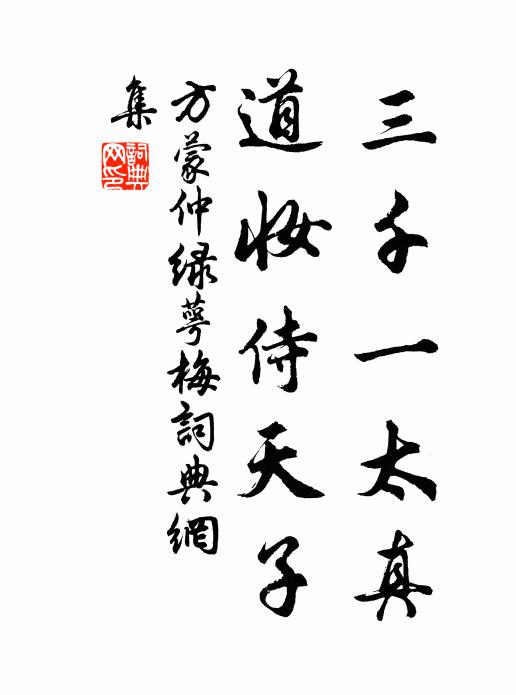 三千一太真
道妝侍天子
方蒙仲綠萼梅詞典網
集
詞典網印